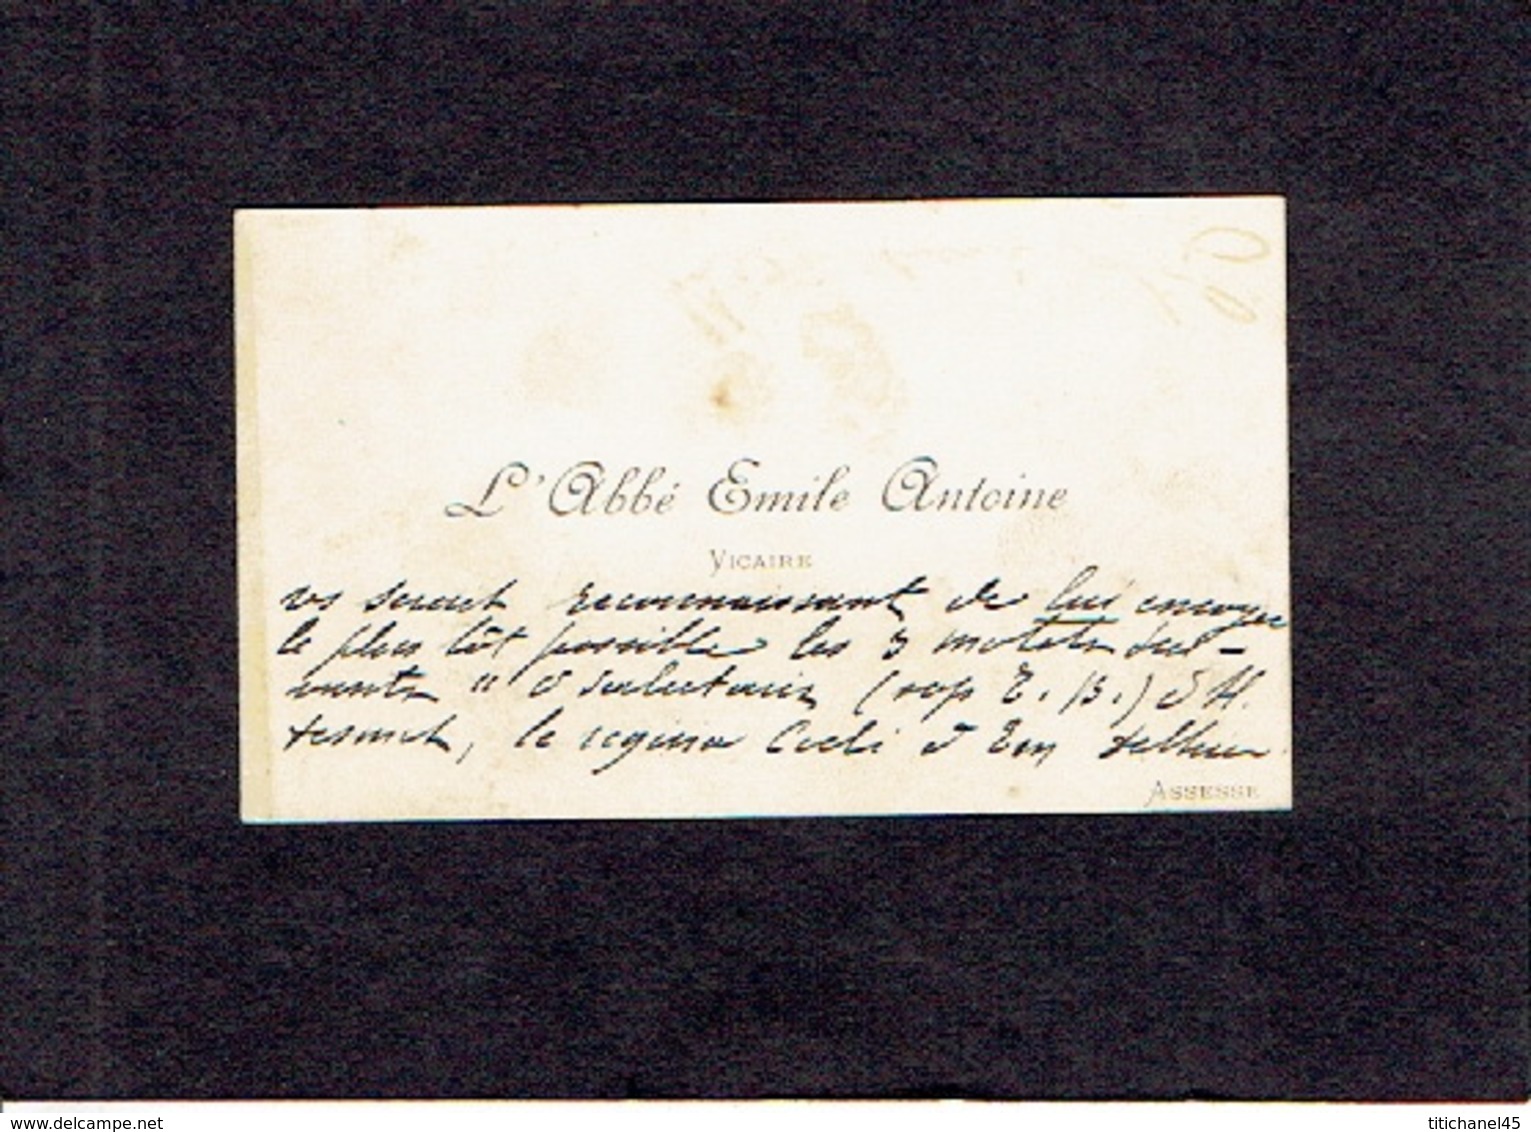 L'Abbé Emile Antoine
VICAIRE
vs serait reconnaissant de lui envoyer
le plus tôt possible les 3 motets sui-
vants " O salutaris (sop T. B.) d H.
le regina Coeli d Em
ASSESSE
delcampe.net
titichanel45